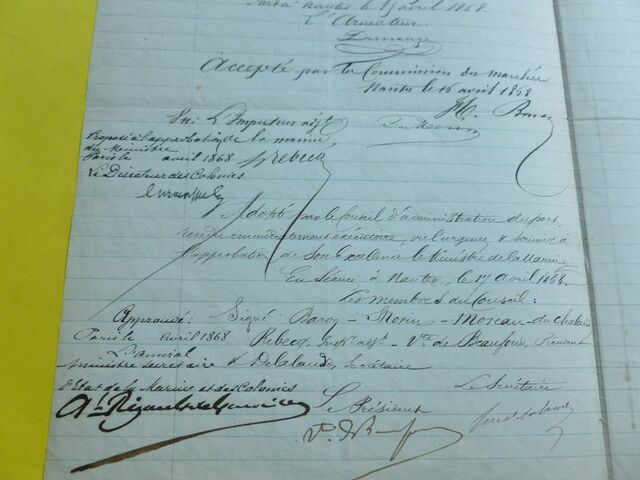 Fait à Nantes le 15 avril 1868
L'Armateur
Demange
Accepté par la Commission des marchés
Nantes le 15 avril 1868
Vu: L'Inspecteur adj.t
de la marine
Rebecq
Proposé à l'approbation
du Ministre
Paris le avril 1868
Le Directeur des Colonies
Adopté par le Conseil d'administration du port,
rendu immédiatement exécutoire, vu l'urgence & soumis à
l'approbation de Son Excellence le Ministre de la Marine
En Séance à Nantes, le 17 avril 1868.
Les membres du Conseil:
Signé Baron - Morin - Moreau - du
Rebecq, Insp.r adj.t - V.te de Beaufond, Président
& Delalande, Secrétaire
Approuvé:
Paris le avril 1868
L'amiral
ministre secrétaire
d'Etat de la Marine et des Colonies
A.l Rigault de Genouilly
Le Président
Le Secrétaire